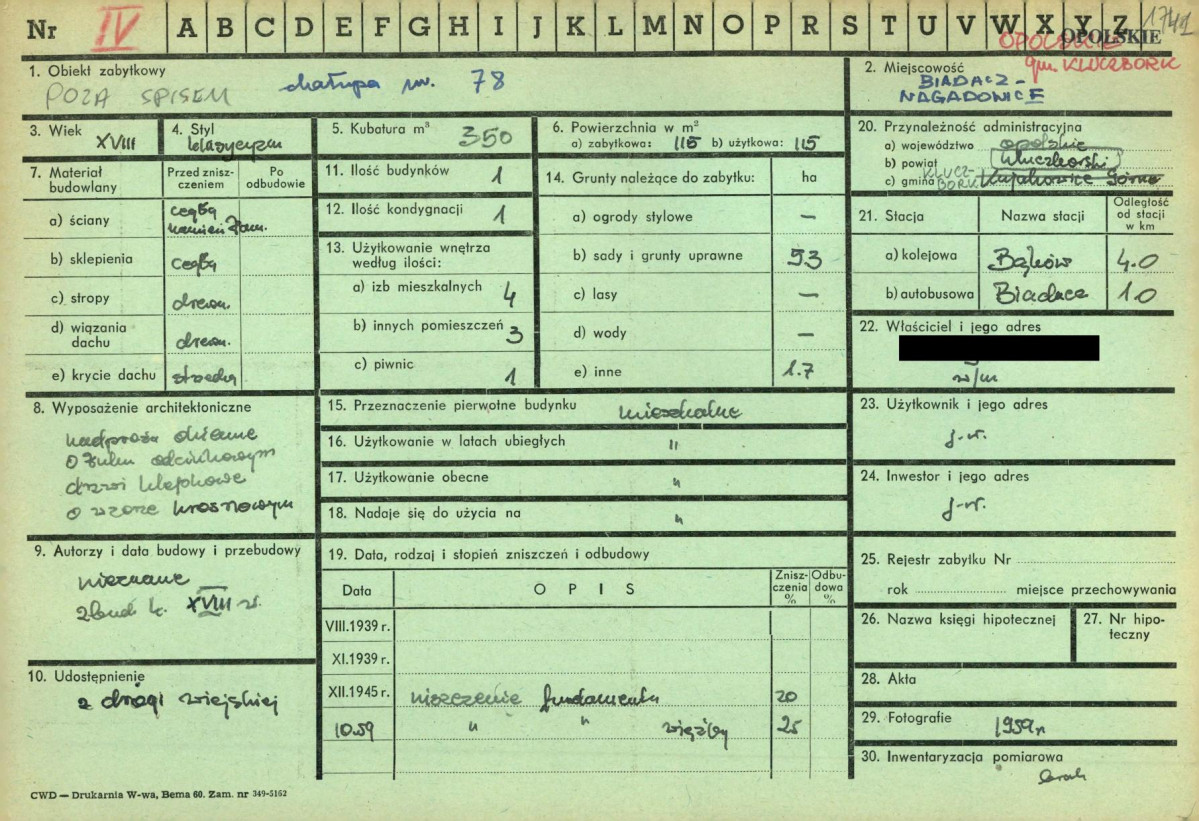 Nr IV A B C D E F G H I J K L M N O P R S T U V W X Y Z 1741
OPOLSKIE
OPOLSKIE
gm. KLUCZBORK
1. Obiekt zabytkowy
POZA SPISEM chałupa nr. 78
2. Miejscowość
BIADACZ -
NAGADOWICE
3. Wiek XVIII
4. Styl klasycyzm
5. Kubatura m³ 350
6. Powierzchnia w m²
a) zabytkowa: 115 b) użytkowa: 115
20. Przynależność administracyjna
a) województwo opolskie
b) powiat kluczborski
c) gmina KLUCZ-
BORK Kujakowice Górne
7. Materiał budowlany
Przed zniszczeniem
Po odbudowie
a) ściany cegła
kamień łam.
b) sklepienia cegła
c) stropy drewn.
d) wiązania dachu drewn.
e) krycie dachu strzecha
11. Ilość budynków 1
12. Ilość kondygnacji 1
13. Użytkowanie wnętrza
według ilości:
a) izb mieszkalnych 4
b) innych pomieszczeń 3
c) piwnic 1
14. Grunty należące do zabytku: ha
a) ogrody stylowe —
b) sady i grunty uprawne 53
c) lasy —
d) wody —
e) inne 1.7
21. Stacja Nazwa stacji Odległość od stacji w km
a) kolejowa Bąków 4.0
b) autobusowa Biadacz 1.0
22. Właściciel i jego adres
w/m
8. Wyposażenie architektoniczne
nadproża okienne
o łuku odcinkowym
drzwi klepkowe
o wzorze krosnowym
15. Przeznaczenie pierwotne budynku mieszkalne
16. Użytkowanie w latach ubiegłych "
17. Użytkowanie obecne "
18. Nadaje się do użycia na "
23. Użytkownik i jego adres
j.w.
24. Inwestor i jego adres
j-w.
9. Autorzy i data budowy i przebudowy
nieznane
zbud k. XVIII w.
19. Data, rodzaj i stopień zniszczeń i odbudowy
Data OPIS Zniszczenia % Odbudowa %
VIII.1939 r.
XI.1939 r.
XII.1945 r. niszczenie fundamentu 20
10.59 " " więźby 25
25. Rejestr zabytku Nr
rok miejsce przechowywania
26. Nazwa księgi hipotecznej
27. Nr hipoteczny
10. Udostępnienie
z drogi wiejskiej
28. Akta
29. Fotografie 1959r
30. Inwentaryzacja pomiarowa
brak
CWD — Drukarnia W-wa, Bema 60. Zam. nr 349-5162